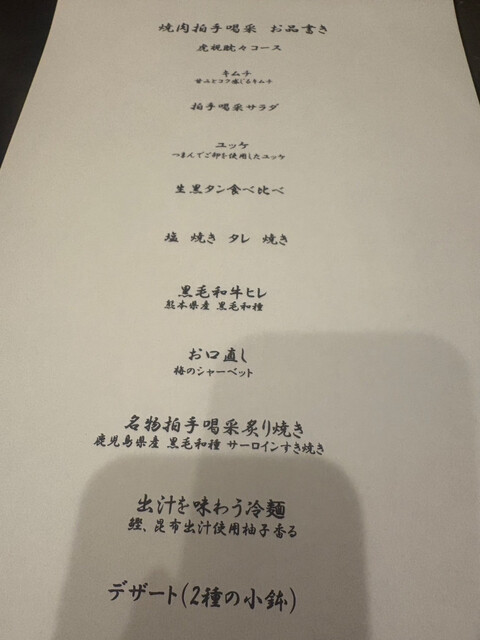 焼肉拍手喝采 お品書き
虎視眈々コース
キムチ
旨みとコク感じるキムチ
拍手喝采サラダ
ユッケ
つまんでご卵を使用したユッケ
生黒タン食べ比べ
塩 焼き タレ 焼き
黒毛和牛ヒレ
熊本県産 黒毛和種
お口直し
梅のシャーベット
名物拍手喝采炙り焼き
鹿児島県産 黒毛和種 サーロインすき焼き
出汁を味わう冷麺
鰹、昆布出汁使用柚子香る
デザート(2種の小鉢)